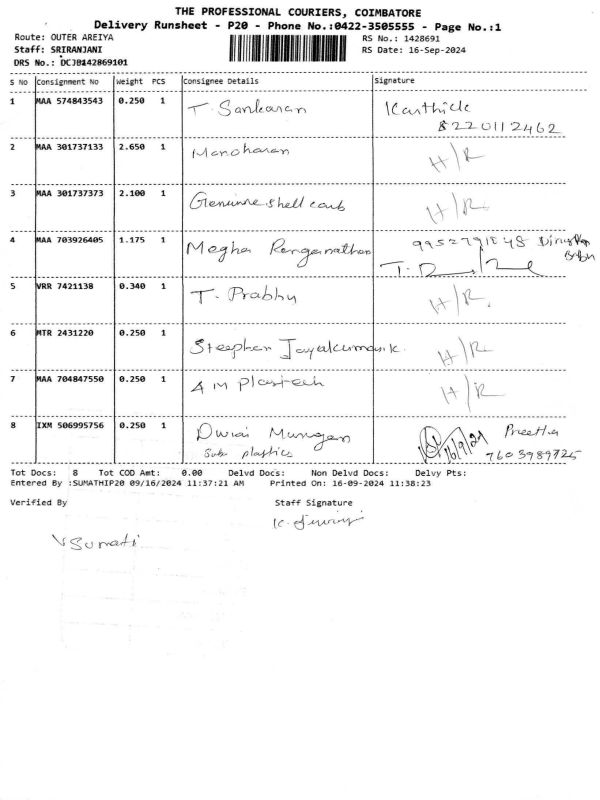 THE PROFESSIONAL COURIERS, COIMBATORE
Delivery Runsheet - P20 - Phone No.:0422-3505555 - Page No.:1
Route: OUTER AREIYA RS No.: 1428691
Staff: SRIRANJANI RS Date: 16-Sep-2024
DRS No.: DCJB142869101
S No Consignment No Weight PCS Consignee Details Signature
1 MAA 574843543 0.250 1 T. Sankaran Karthick
8220112462
2 MAA 301737133 2.650 1 Manoharan H/R
3 MAA 301737373 2.100 1 Genuine shell carb H/R
4 MAA 703926405 1.175 1 Megha Ranganathan
5 VRR 7421138 0.340 1 T. Prabhu H/R
6 MTR 2431220 0.250 1 Steephan Jayakumar.k. H/R
7 MAA 704847550 0.250 1 A M Plastech H/R
8 IXM 506995756 0.250 1 Durai Murugan 16/9/24 Preetha
Sub plastics 7603989725
Tot Docs: 8 Tot COD Amt: 0.00 Delvd Docs: Non Delvd Docs: Delvy Pts:
Entered By :SUMATHIP20 09/16/2024 11:37:21 AM Printed On: 16-09-2024 11:38:23
Verified By Staff Signature
V Sumati